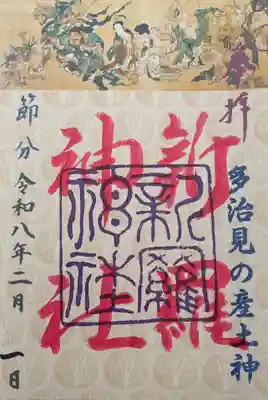 拝
多治見の産土神
新羅
神社
新羅
神社
節分 令和八年二月 一日